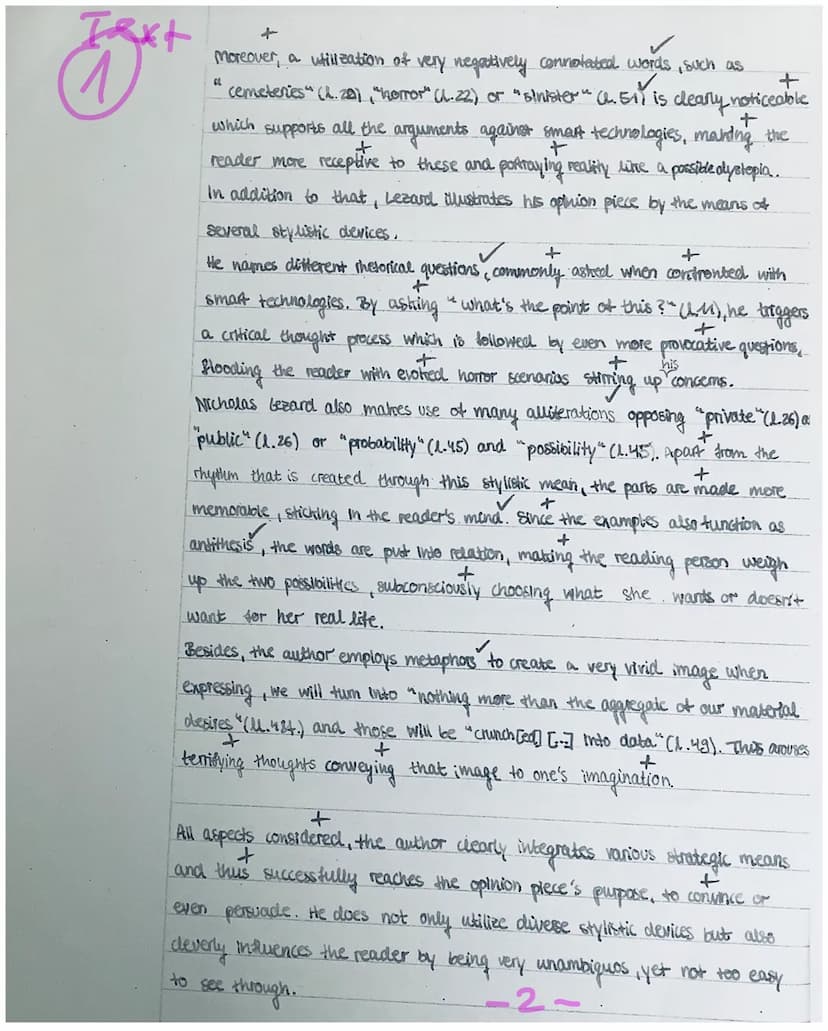 Text
1
Moreover, a utilization of very negatively connotated words, such as
"cemeteries" (l. 20), "horror" (l. 22) or "sinister" (l. 51) is clearly noticeable
which supports all the arguments against smart technologies, making the
reader more receptive to these and portraying reality like a possible dystopia.
In addition to that, Lezard illustrates his opinion piece by the means of
several stylistic devices.
He names different rhetorical questions, commonly asked when confronted with
smart technologies. By asking "what's the point of this?" (l. 11), he triggers
a critical thought process which is followed by even more provocative questions,
flooding the reader with evoked horror scenarios stirring up his concerns.
Nicholas Lezard also makes use of many alliterations opposing "private" (l. 26)
"public" (l. 26) or "probability" (l. 45) and "possibility" (l. 45). Apart from the
rhythm that is created through this stylistic mean, the parts are made more
memorable, sticking in the reader's mind. Since the examples also function as
antithesis, the words are put into relation, making the reading person weigh
up the two possibilities, subconsciously choosing what she wants or doesn't
want for her real life.
Besides, the author employs metaphors to create a very vivid image when
expressing, we will turn into "nothing more than the aggregate of our material
desires" (ll. 48f.) and those will be "crunch[ed] [...] into data" (l. 49). This arouses
terrifying thoughts conveying that image to one's imagination.
All aspects considered, the author clearly integrates various strategic means
and thus successfully reaches the opinion piece's purpose, to convince or
even persuade. He does not only utilize diverse stylistic devices but also
cleverly influences the reader by being very unambiguos, yet not too easy
to see through.
-2-